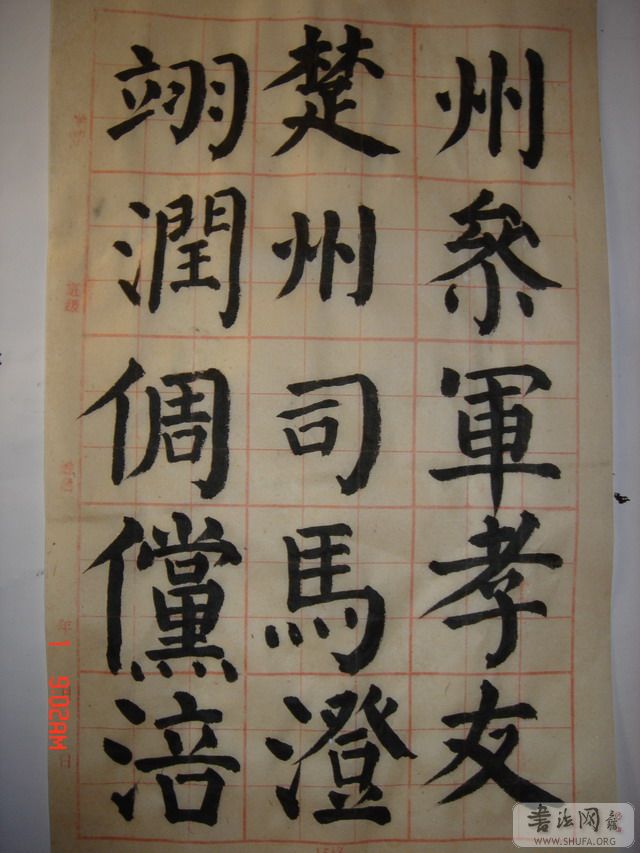 州叅軍孝友
楚州司馬澄
翊潤倜儻涪
年
日
1 9:02AM
书法网
WWW.SHUFA.ORG